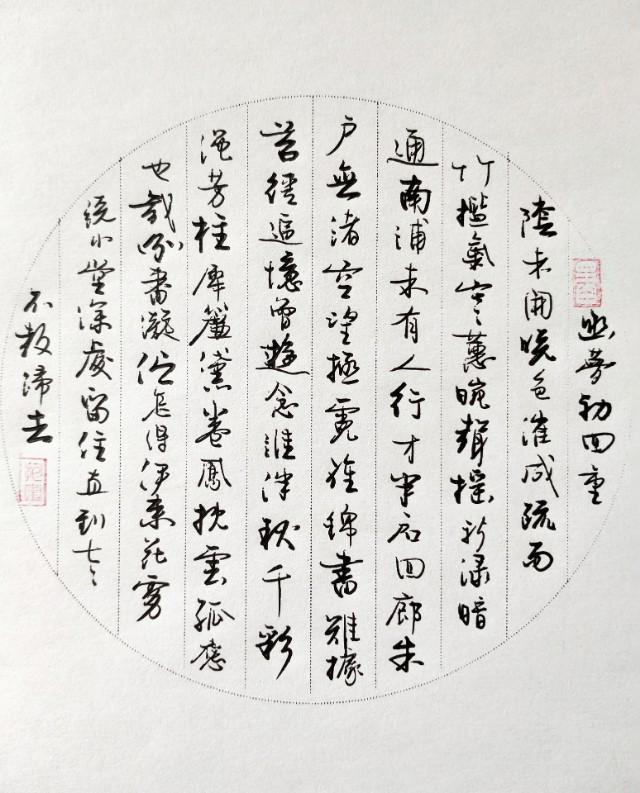 幽夢初回重
陰未開曉色催成疏雨
竹檻氣寒蕙畹聲搖新綠暗
通南浦未有人行才半启回廊朱
户無渚空望極霓旌錦書難據
苔徑追憶曾遊念誰伴秋千彩
繩芳柱犀簾黛卷鳳枕雲孤應
也幾番凝伫怎得伊來花雾
繞小堂深處留住直到老
不教歸去